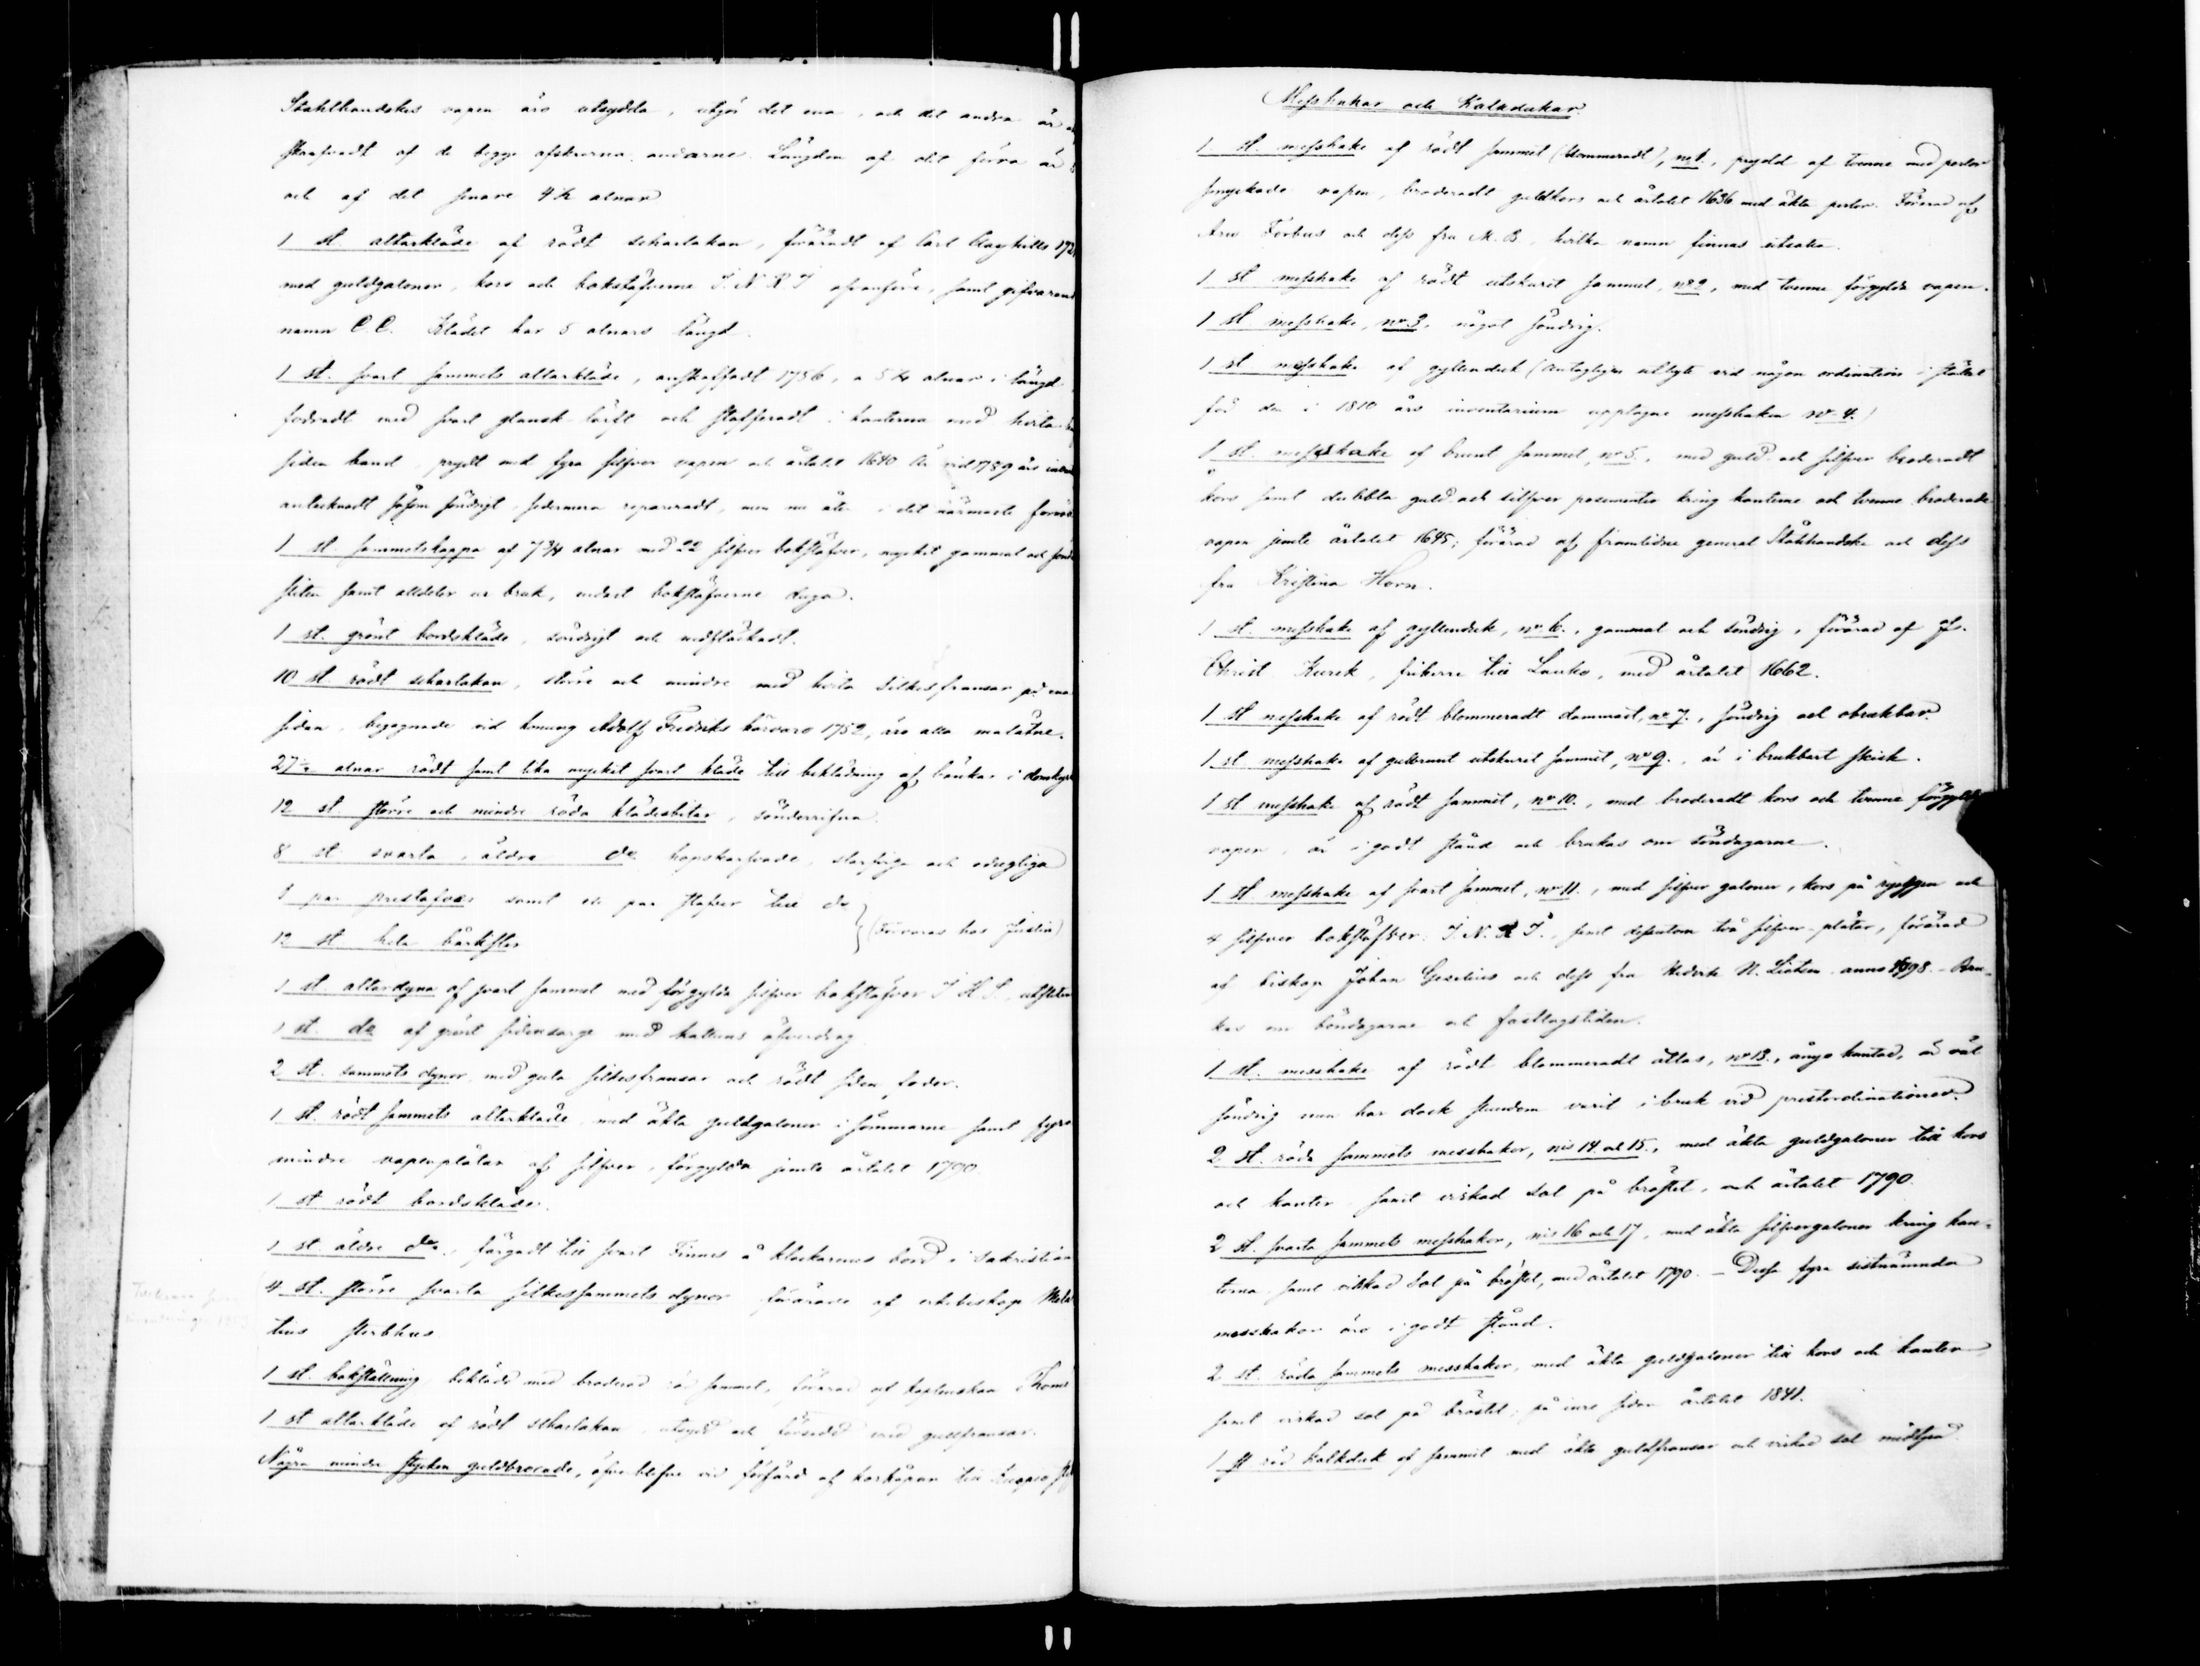 Stahlhandskes vapen äro utsydda, utgör det ena, och det andra är
skarfvadt af de begge afskurna ändarne. Längden af det förra är
och af det senare 4½ alnar
1 st. altarkläde af rödt scharlakan, förärdt af Carl
med guldgaloner, kors och bokstäfverne I. N. R. I ofvanföre, samt gifvarens
namn C. C. Klädet har 5 alnars längd.
1 st. svart sammets altarkläde, anskaffadt 1756, a 5¼ alnar i längd
fodradt med svart glansk lärft och stafferadt i kanterna med hvita
siden band, prydt med fyra silfver vapen och årtalet 1640 Är vid 1789 års
antecknadt såsom söndrigt, sedermera repareradt, men nu åter i det närmaste
1 st. sammetskappa af 7¾ alnar med 22 silfver bokstäfver, mycket gammal och
sliten samt alldeles ur bruk, endast bokstäfverne duga.
1 st. grönt bordskläde, söndrigt och nedfläckadt.
10 st rödt scharlakan, större och mindre med hvita silkesfransar på ena
sidan, begagnade vid konung Adolf Fredriks härvaro 1752, äro alla malätne.
27½ alnar rödt samt lika mycket svart kläde till beklädning af bänkar i domkyrk
12 st större och mindre röda klädesbitar, sönderrifna.
8 st svarta, äldre do hopskarfvade, skarfviga och odugliga
1 par prestafvar samt ett par stafver till do
12 st hela bårkflor } (Förvaras hos Juslin)
1 st. altardyna af svart sammet med förgylda silfver bokstäfver I H S, utsliten
1 st. do af grönt sidensarge med kattuns öfverdrag
2 st. sammets dynor med gula silkesfransar och rödt siden foder.
1 st. rödt sammets altarkläde med äkta guldgaloner i sömmarne samt fyra
mindre vapenplåtar af silfver, förgylda jemte årtalet 1790
1 st rödt bordskläde.
1 st äldre do., färgadt till svart Finnes å klockarnes bord i sakristian
4 st. större svarta silkessammets dynor förärade af erkebiskop
tius sterbhus
1 st. bokställning beklädd med broderad röd sammet, förärad af kaplenskan
1 st altarkläde af rödt scharlakan, utsydd och försedd med gullfransar.
Några mindre stycken guldbrocade, öfverblefne vid förfärd. af korkåpan till Kuopio
Messhakar och Kalkdukar.
1 st. messhake af rödt sammet (blommeradt), no 1., prydd af tvenne med perlor
smyckade vapen, broderadt guldkors och årtalet 1636 med äkta perlor. Förärad af
Arv. Forbus och dess fru M. B., hvilka namn finnas utsatta.
1 st messhake af rödt utskurit sammet, no 2, med tvenne förgylda vapen.
1 st messhake, no 3, något söndrig.
1 st messhake af gyllenduk (antagligen utbytt vid någon ordination i stället
för den i 1810 års inventarium upptagne messhaken no 4.)
1 st messhake af brunt sammet, no 5., med guld och silfver broderadt
kors samt dubbla guld och silfver posementer kring kanterne och tvenne broderade
vapen jemte årtalet 1645; förärad af framlidne general Stålhandske och dess
fru Kristina Horn.
1 st. messhake af gyllenduk, no 6., gammal och söndrig, förärad af
Christ Kurck, friherre till Lauko, med årtalet 1662.
1 st messhake af rödt blommeradt dammast, no 7., söndrig och obrukbar.
1 st messhake af gulbrunt utskurit sammet, no 9., är i brukbart skick.
1 st messhake af rödt sammet, no 10., med broderadt kors och tvenne förgylda
vapen, är i godt stånd och brukas om söndagarne.
1 st. messhake af svart sammet, no 11., med silfver galoner, kors på ryggen och
4 silfver bokstäfver I. N. R. I., samt dessutom två silfver-plåtar, förärad
af biskop Johan Gezelius och dess fru Hedvik N. Lietzen anno 1698. - Bru-
kas om böndagarne och fastlagstiden.
1 st. messhake af rödt blommeradt attlas, no 13., ånyo kantad, är väl
söndrig men har dock stundom varit i bruk vid prestordinationer.
2 st. röda sammets messhakor, nis 14 och 15., med äkta guldgaloner till kors
och kanter, samt virkad sol på bröstet, och årtalet 1790.
2 st. svarta sammets messhakor, nis 16 och 17, med äkta silfvergaloner kring kan-
terna samt virkad sol på bröstet, med årtalet 1790. - Dessa fyra sistnämnda
messhakor äro i godt stånd.
2 st. röda sammets messhakor, med äkta guldgaloner till kors och kanter
samt virkad sol på bröstet, på inre sidan årtalet 1841.
1 st röd kalkduk af sammet med äkta guldfransar och virkad sol midtpå